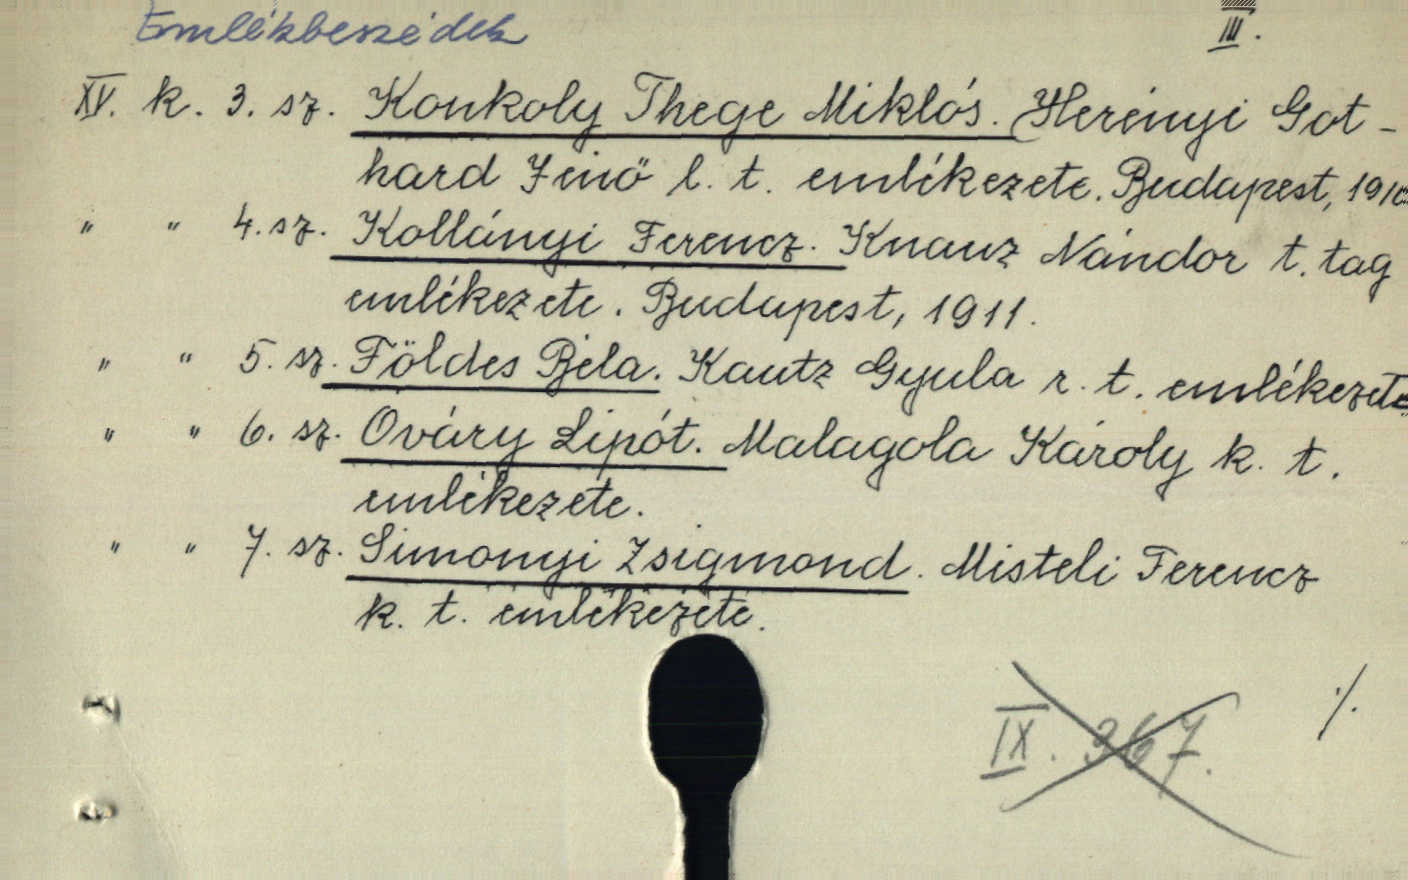 Emlékbeszédek
III.
XV. k. 3. sz. Konkoly Thege Miklós. Herényi Got-
hard Jenő l. t. emlékezete. Budapest, 1910
" " 4. sz. Kollányi Ferencz. Knauz Nándor t. tag
emlékezete. Budapest, 1911.
" " 5. sz. Földes Béla. Kautz Gyula r. t. emlékezete
" " 6. sz. Ováry Lipót. Malagola Károly k. t.
emlékezete.
" " 7. sz. Simonyi Zsigmond. Misteli Ferencz
k. t. emlékezete.
IX. 367.
./.